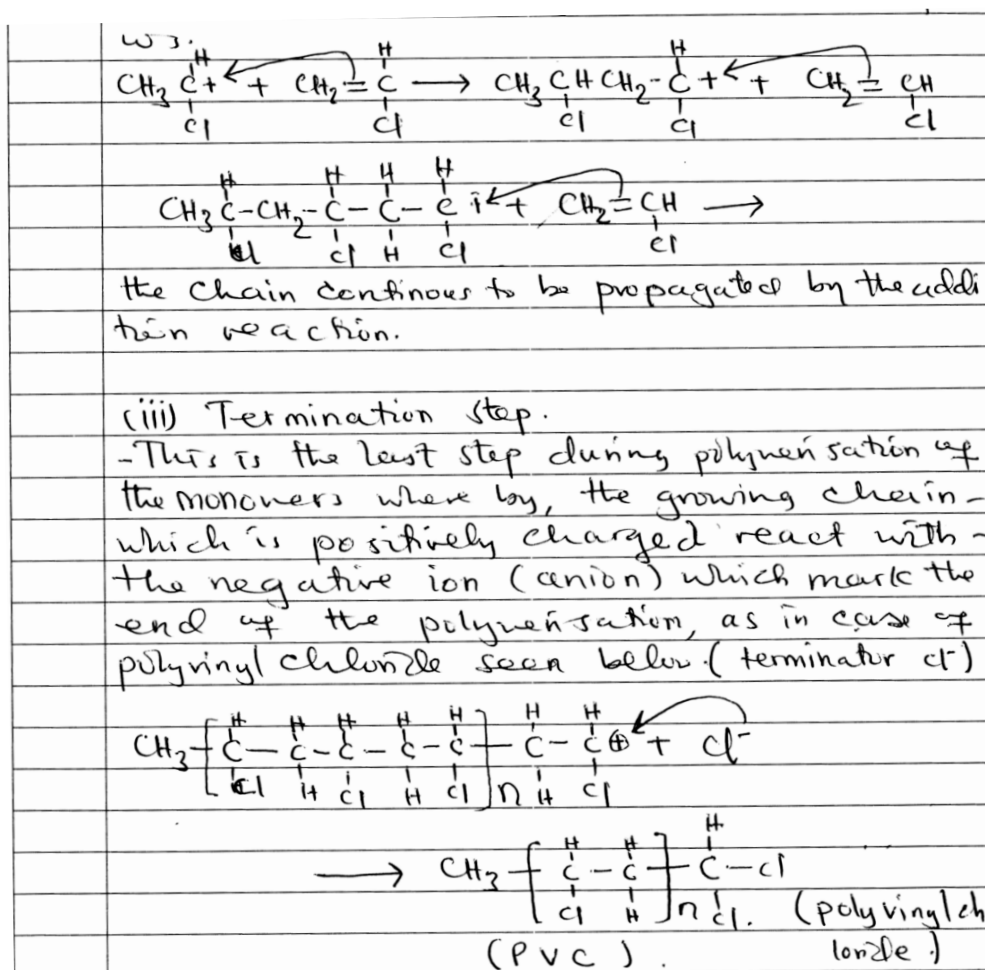 ws.
H H H
CH₃ C+ + CH₂ = C ⟶ CH₃ CH CH₂ - C + + CH₂ = CH
Cl Cl Cl Cl Cl
H H H H
CH₃ C - CH₂ - C - C - C + + CH₂ = CH ⟶
Cl Cl H Cl Cl
the chain continous to be propagated by the addi
tion reaction.
(iii) Termination step.
- This is the last step during polymerisation of
the monomers where by, the growing chain -
which is positively charged react with -
the negative ion (anion) which mark the
end of the polymerisation, as in case of
polyvinyl chloride seen below. (terminator Cl⁻)
H H H H H H H
CH₃ [ C - C - C - C - C ] C - C ⊕ + Cl⁻
Cl H Cl H Cl n H Cl
H H H
⟶ CH₃ [ C - C ] C - Cl
Cl H n Cl. (polyvinylch
(PVC). loride.)